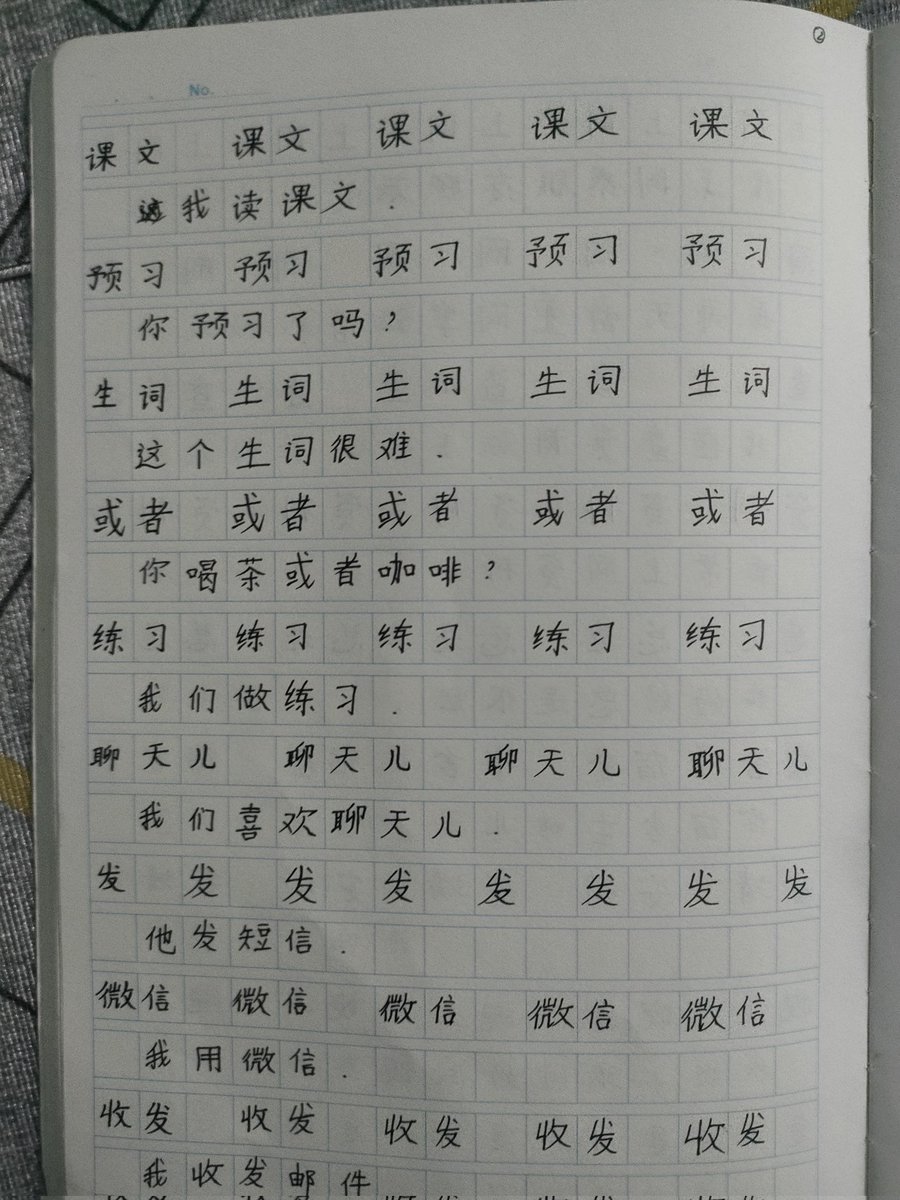 ②
No.
课文 课文 课文 课文 课文
我读课文.
预习 预习 预习 预习 预习
你预习了吗?
生词 生词 生词 生词 生词
这个生词很难.
或者 或者 或者 或者 或者
你喝茶或者咖啡?
练习 练习 练习 练习 练习
我们做练习.
聊天儿 聊天儿 聊天儿 聊天儿
我们喜欢聊天儿.
发 发 发 发 发 发 发 发
他发短信.
微信 微信 微信 微信 微信
我用微信.
收发 收发 收发 收发 收发
我收发邮件